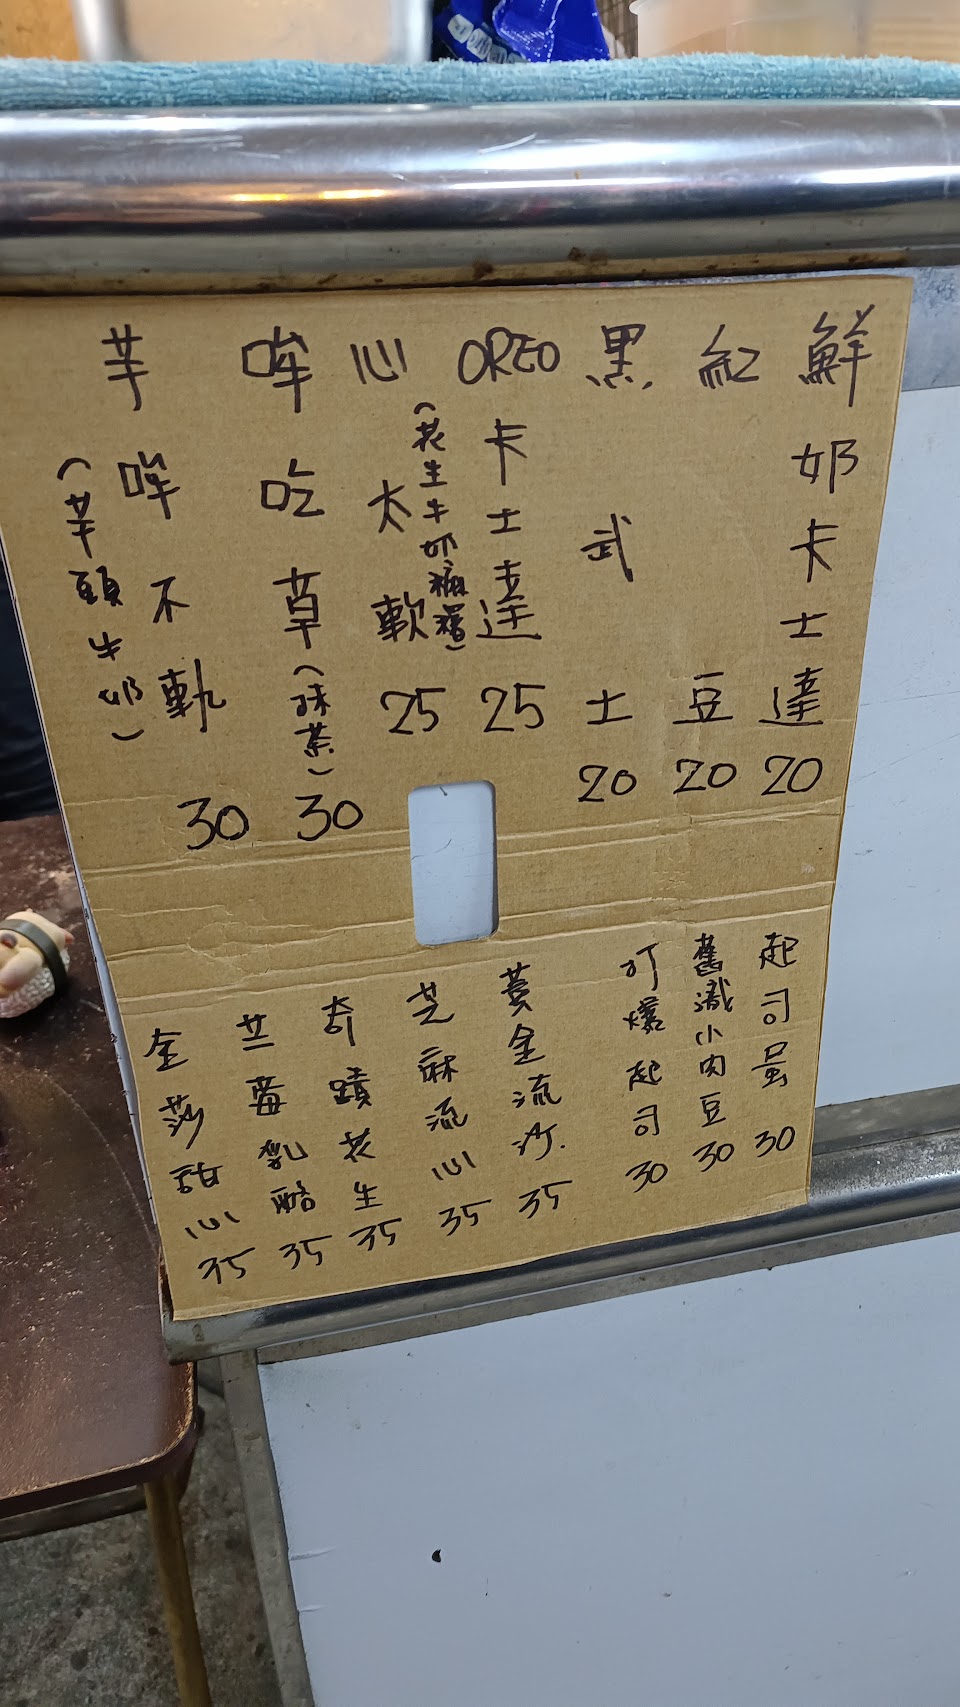 鮮奶卡士達 20
紅豆 20
黑武士 20
OREO卡士達 25
心太軟 25
(花生牛奶麻糬)
哞吃草(抹茶) 30
芋哞不軌 30
(芋頭牛奶)
起司蛋 30
舊識小肉豆 30
叮爆起司 30
黃金流沙 35
芝麻流心 35
奇蹟花生 35
莓乳酪 35
金莎甜心 35